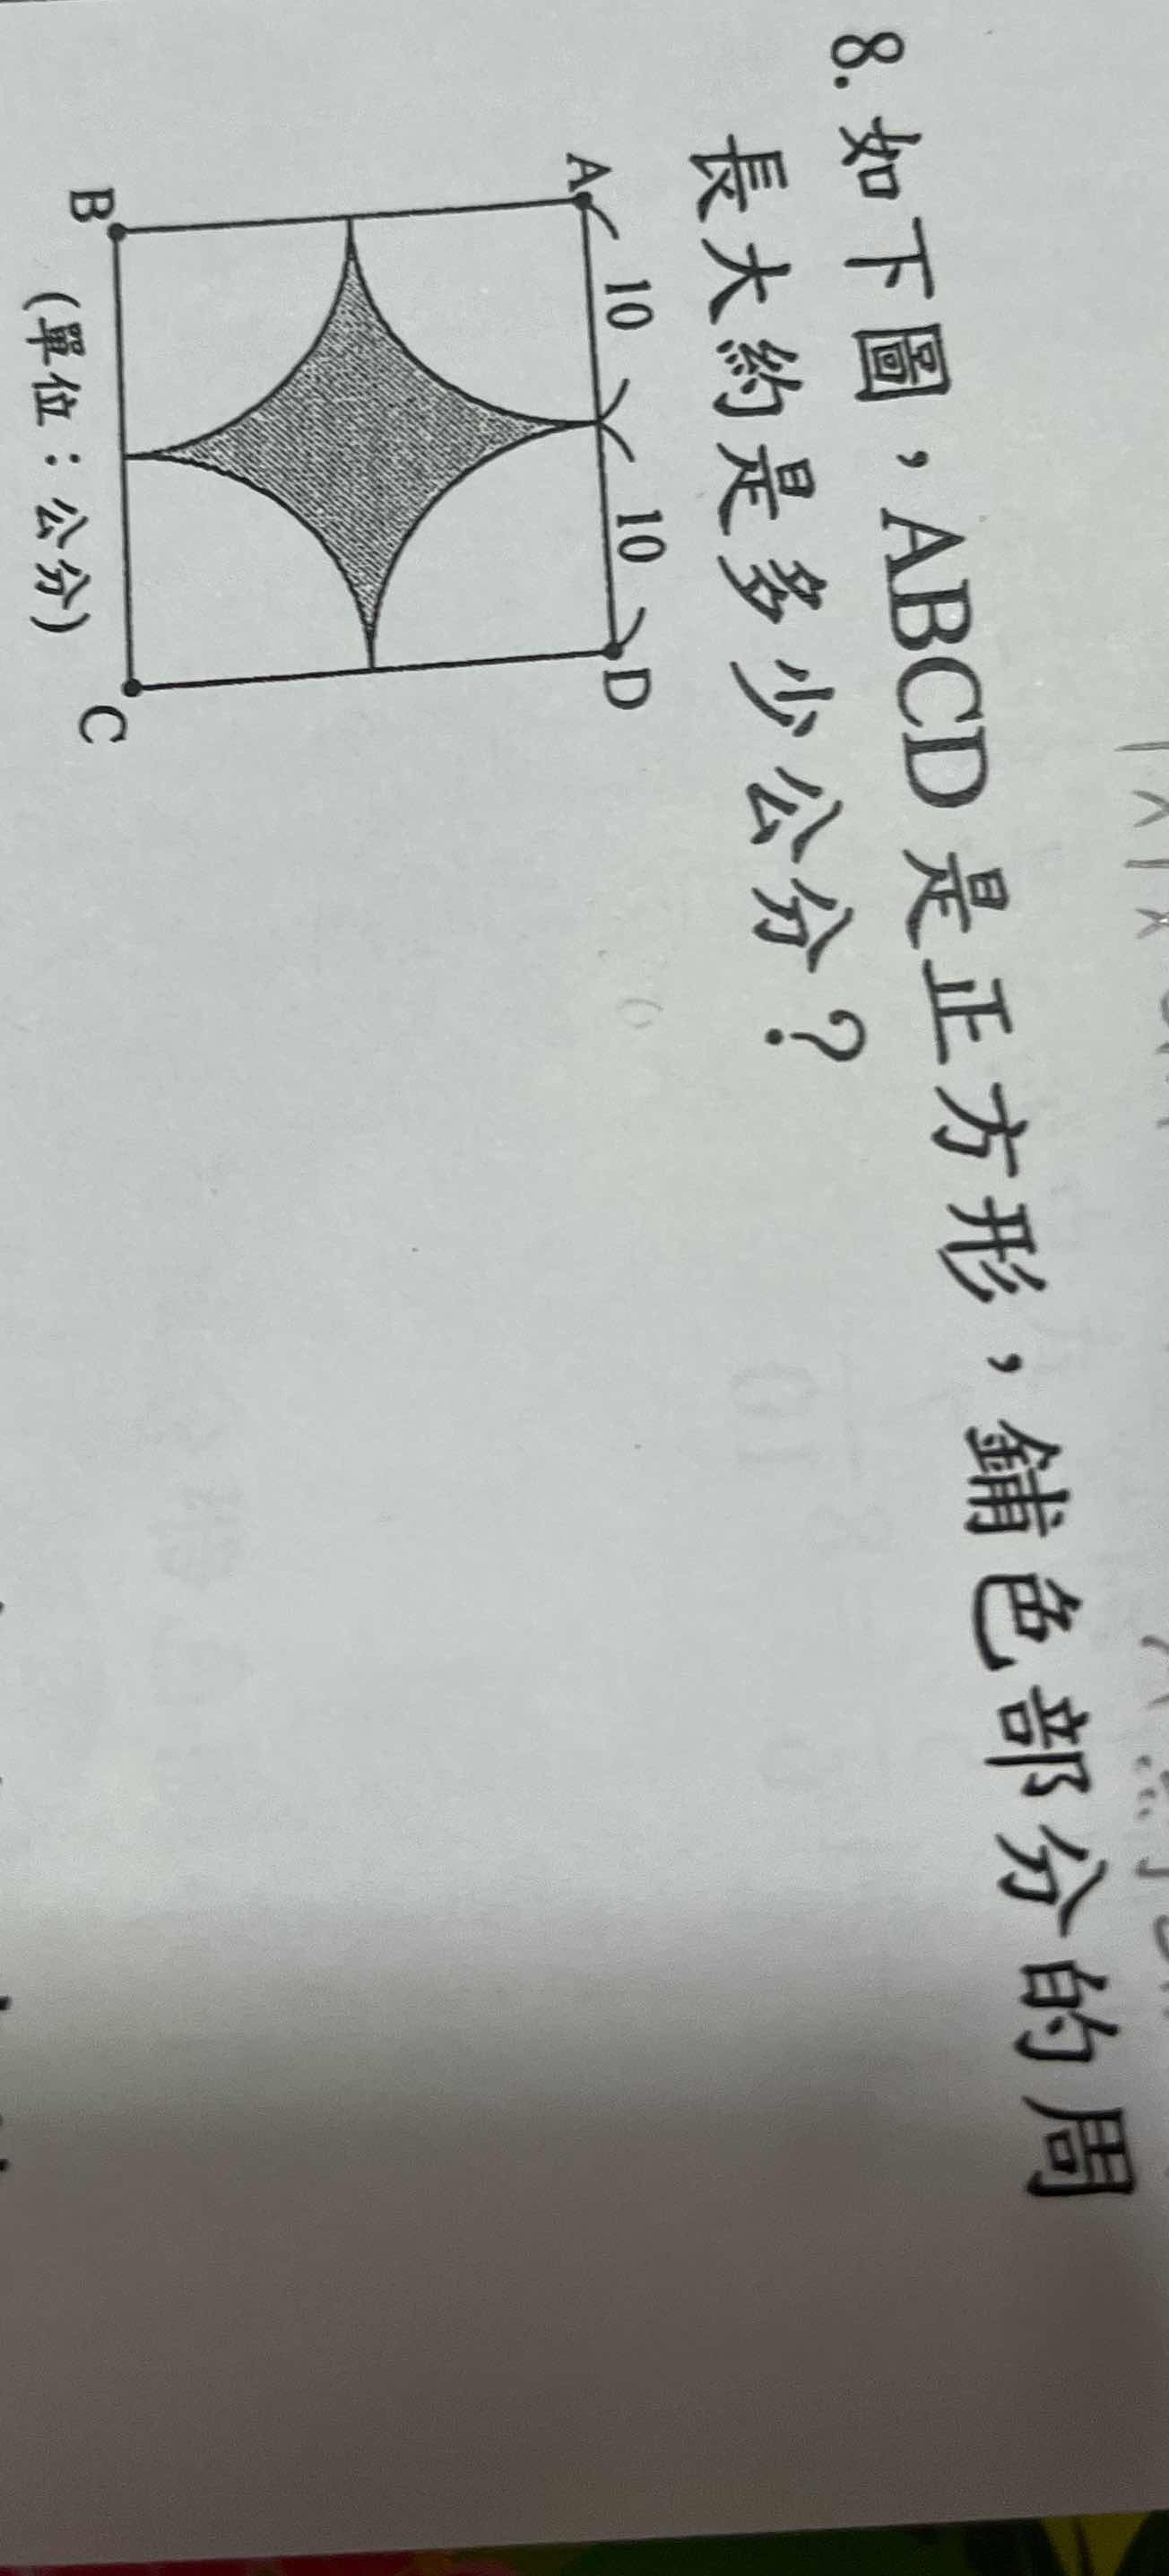 8. 如下圖，ABCD 是正方形，鋪色部分的周
長大約是多少公分？
A 10 10 D
B C
(單位：公分)